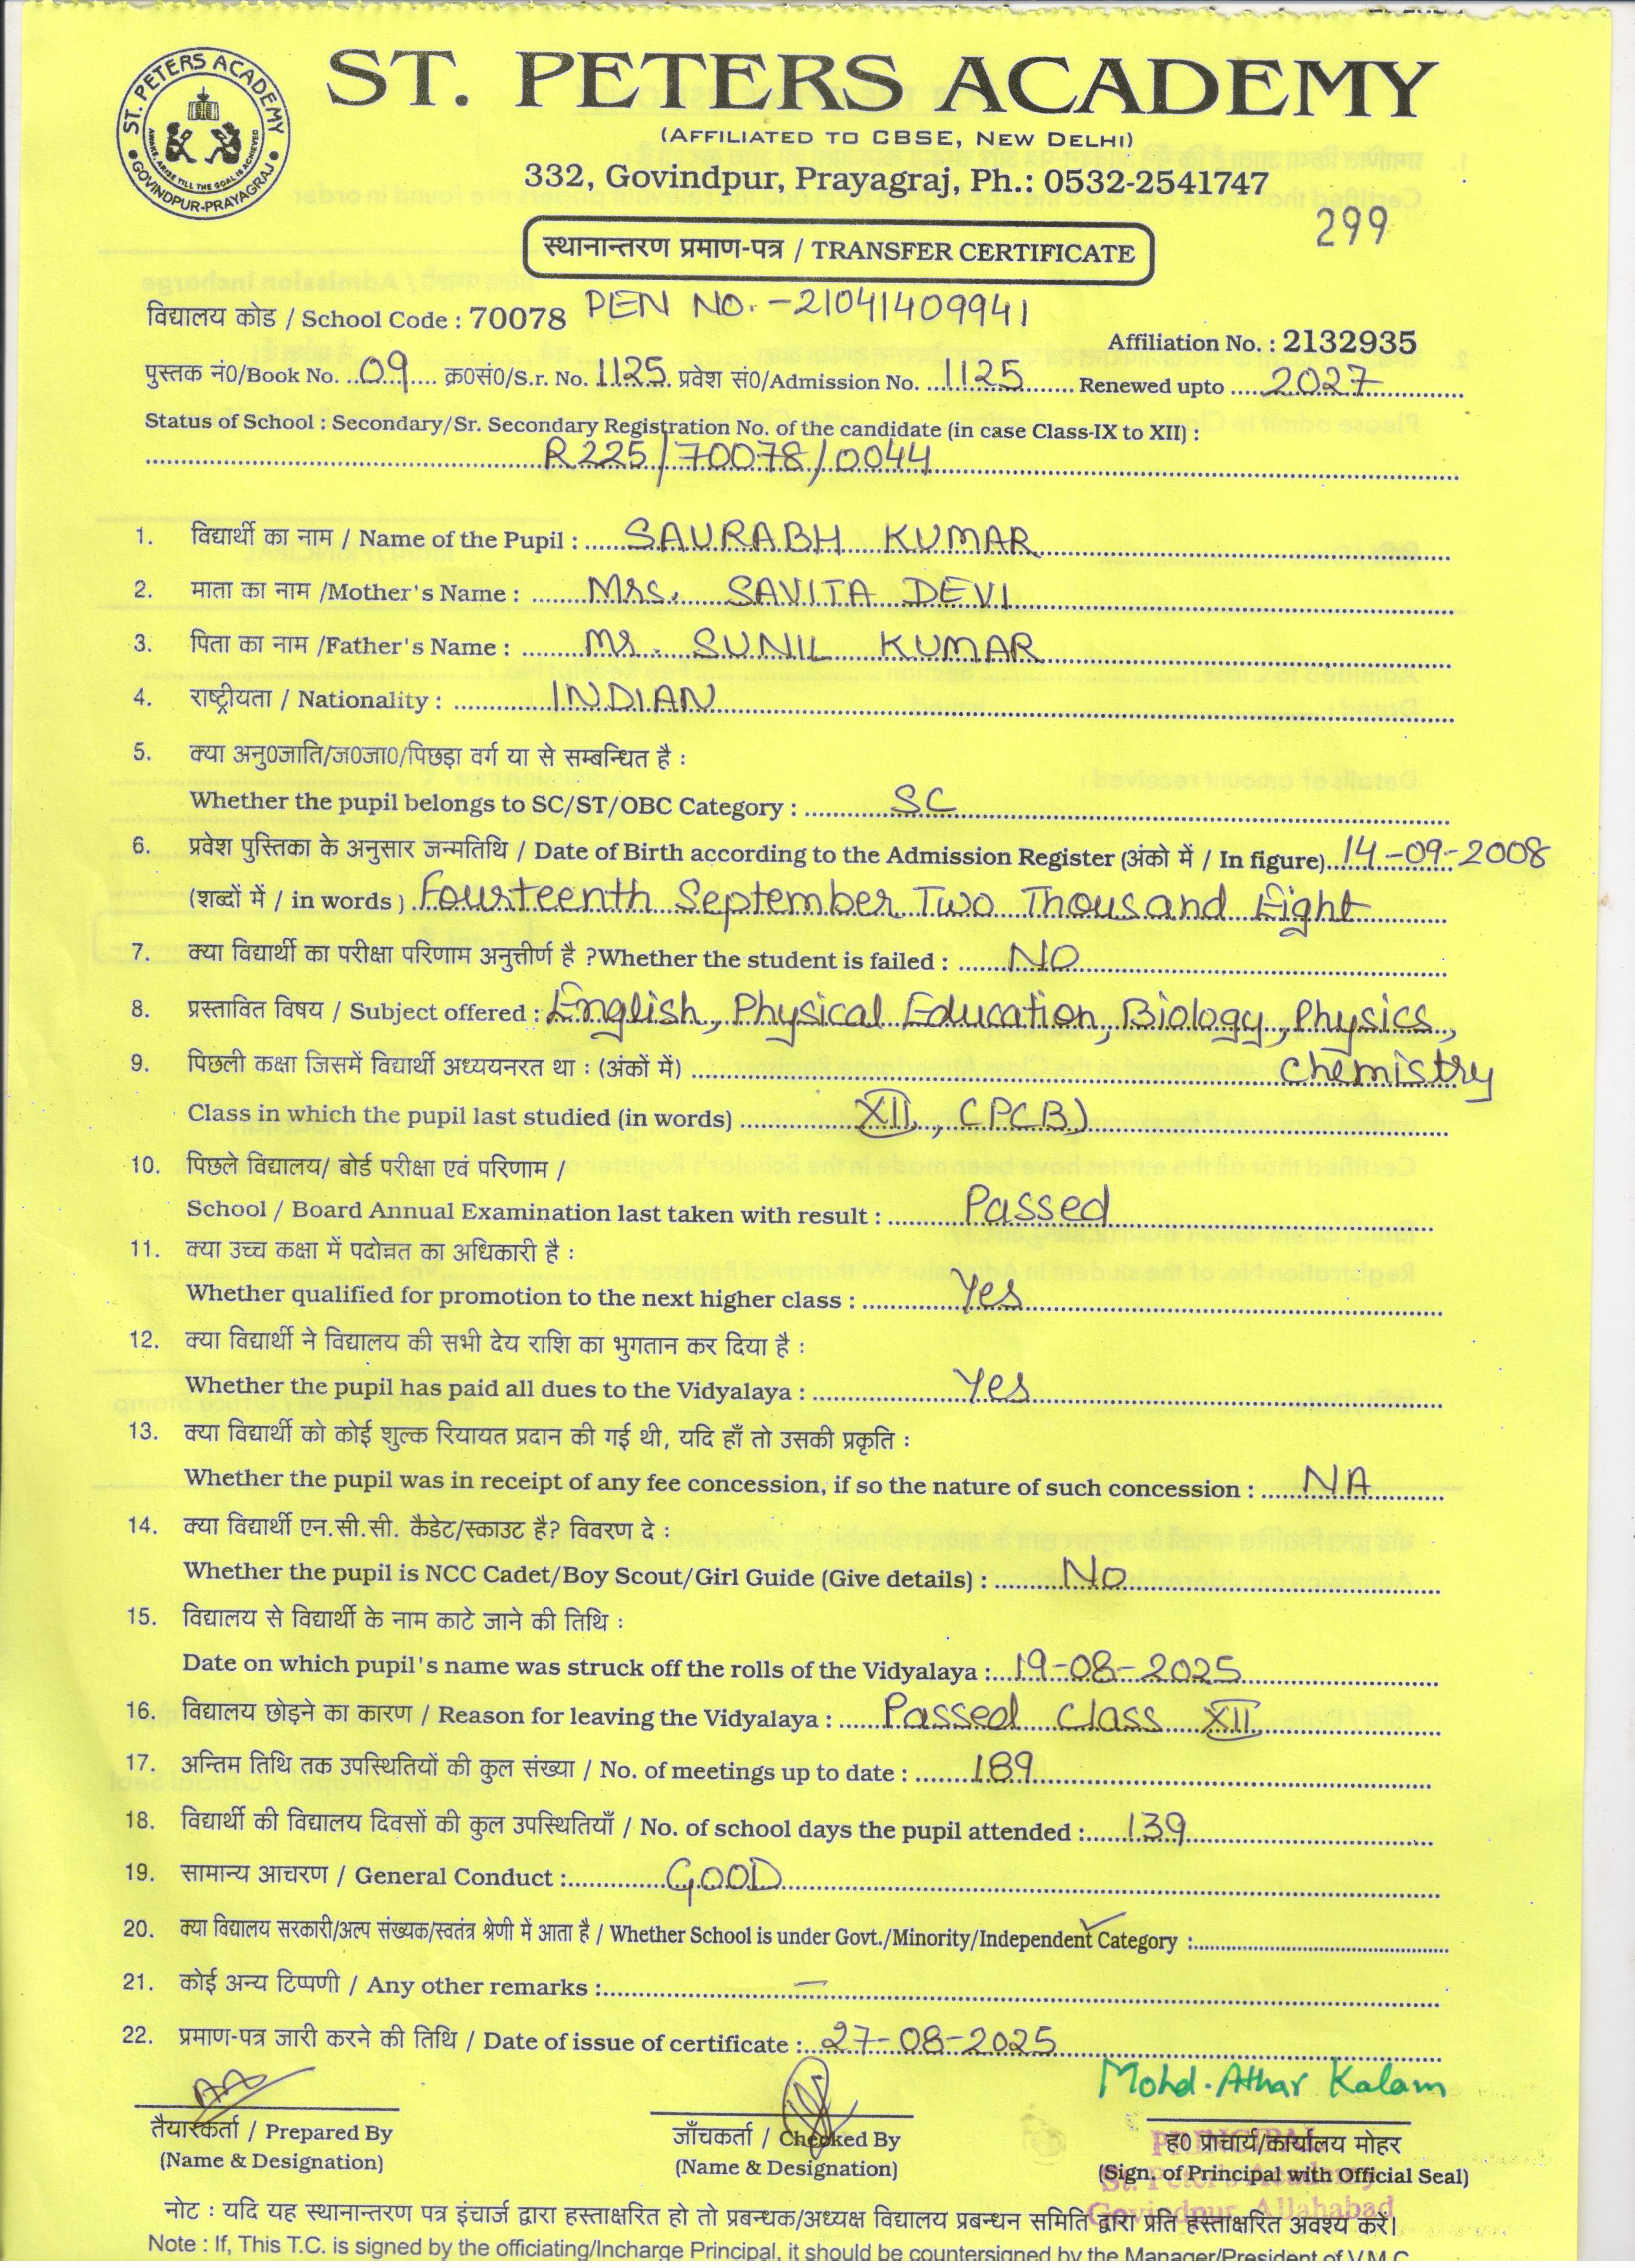 ST. PETERS ACADEMY
ST. PETERS ACADEMY
AWAKE, ARISE TILL THE GOAL IS ACHIEVED
GOVINDPUR-PRAYAGRAJ
(AFFILIATED TO CBSE, NEW DELHI)
332, Govindpur, Prayagraj, Ph.: 0532-2541747
299
स्थानान्तरण प्रमाण-पत्र / TRANSFER CERTIFICATE
विद्यालय कोड / School Code : 70078 PEN NO. -21041409941
Affiliation No. : 2132935
पुस्तक नं0/Book No. 09 क्र0सं0/S.r. No. 1125 प्रवेश सं0/Admission No. 1125 Renewed upto 2027
Status of School : Secondary/Sr. Secondary Registration No. of the candidate (in case Class-IX to XII) :
R225/70078/0044
1. विद्यार्थी का नाम / Name of the Pupil : SAURABH KUMAR
2. माता का नाम /Mother's Name : Mrs. SAVITA DEVI
3. पिता का नाम /Father's Name : Mr. SUNIL KUMAR
4. राष्ट्रीयता / Nationality : INDIAN
5. क्या अनु0जाति/ज0जा0/पिछड़ा वर्ग या से सम्बन्धित है :
Whether the pupil belongs to SC/ST/OBC Category : SC
6. प्रवेश पुस्तिका के अनुसार जन्मतिथि / Date of Birth according to the Admission Register (अंको में / In figure) 14-09-2008
(शब्दों में / in words ) Fourteenth September Two Thousand Eight
7. क्या विद्यार्थी का परीक्षा परिणाम अनुत्तीर्ण है ?Whether the student is failed : NO
8. प्रस्तावित विषय / Subject offered : English, Physical Education, Biology, Physics,
Chemistry
9. पिछली कक्षा जिसमें विद्यार्थी अध्ययनरत था : (अंकों में)
Class in which the pupil last studied (in words) XII, (PCB)
10. पिछले विद्यालय/ बोर्ड परीक्षा एवं परिणाम /
School / Board Annual Examination last taken with result : Passed
11. क्या उच्च कक्षा में पदोन्नत का अधिकारी है :
Whether qualified for promotion to the next higher class : Yes
12. क्या विद्यार्थी ने विद्यालय की सभी देय राशि का भुगतान कर दिया है :
Whether the pupil has paid all dues to the Vidyalaya : Yes
13. क्या विद्यार्थी को कोई शुल्क रियायत प्रदान की गई थी, यदि हाँ तो उसकी प्रकृति :
Whether the pupil was in receipt of any fee concession, if so the nature of such concession : NA
14. क्या विद्यार्थी एन.सी.सी. कैडेट/स्काउट है? विवरण दे :
Whether the pupil is NCC Cadet/Boy Scout/Girl Guide (Give details) : No
15. विद्यालय से विद्यार्थी के नाम काटे जाने की तिथि :
Date on which pupil's name was struck off the rolls of the Vidyalaya : 19-08-2025
16. विद्यालय छोड़ने का कारण / Reason for leaving the Vidyalaya : Passed Class XII
17. अन्तिम तिथि तक उपस्थितियों की कुल संख्या / No. of meetings up to date : 189
18. विद्यार्थी की विद्यालय दिवसों की कुल उपस्थितियाँ / No. of school days the pupil attended : 139
19. सामान्य आचरण / General Conduct : GOOD
20. क्या विद्यालय सरकारी/अल्प संख्यक/स्वतंत्र श्रेणी में आता है / Whether School is under Govt./Minority/Independent Category :
21. कोई अन्य टिप्पणी / Any other remarks : —
22. प्रमाण-पत्र जारी करने की तिथि / Date of issue of certificate : 27-08-2025
Mohd. Athar Kalam
तैयारकर्ता / Prepared By
(Name & Designation)
जाँचकर्ता / Checked By
(Name & Designation)
ह0 प्राचार्य/कार्यालय मोहर
(Sign. of Principal with Official Seal)
PRINCIPAL
St. Peter's Academy
Govindpur, Allahabad
नोट : यदि यह स्थानान्तरण पत्र इंचार्ज द्वारा हस्ताक्षरित हो तो प्रबन्धक/अध्यक्ष विद्यालय प्रबन्धन समिति द्वारा प्रति हस्ताक्षरित अवश्य करें।
Note : If, This T.C. is signed by the officiating/Incharge Principal, it should be countersigned by the Manager/President of V.M.C.